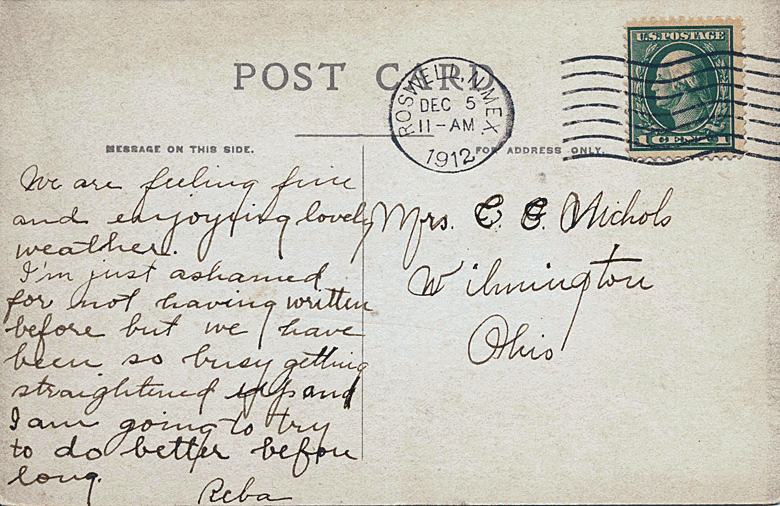 POST CARD
U.S. POSTAGE
1 CENT 1
ROSWELL, N MEX
DEC 5
11-AM
1912
MESSAGE ON THIS SIDE.
FOR ADDRESS ONLY.
We are feeling fine
and enjoying lovely
weather.
I'm just ashamed
for not having written
before but we have
been so busy getting
straightened up and
I am going to try
to do better before
long.
Reba
Mrs. C. C. Nichols
Wilmington
Ohio